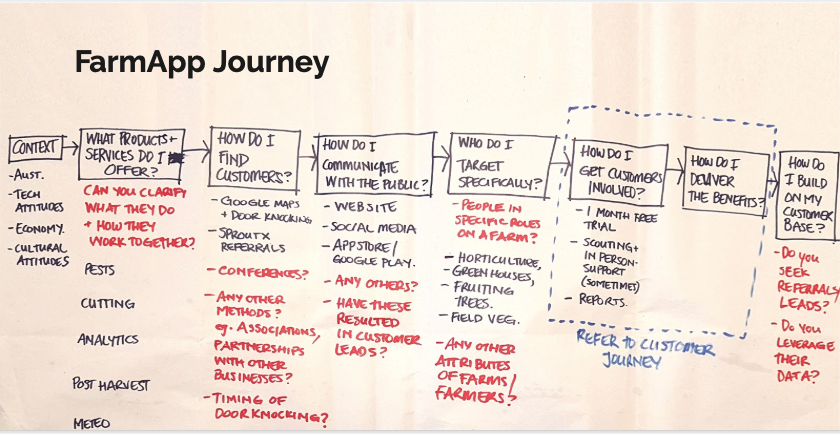 FarmApp Journey
CONTEXT
- AUST.
- TECH
ATTITUDES
- ECONOMY.
- CULTURAL
ATTITUDES
WHAT PRODUCTS +
SERVICES DO I
OFFER?
CAN YOU CLARIFY
WHAT THEY DO
+ HOW THEY
WORK TOGETHER?
PESTS
CUTTING
ANALYTICS
POST HARVEST
METEO
HOW DO I
FIND
CUSTOMERS?
- GOOGLE MAPS
+ DOOR KNOCKING
- SPROUTX
REFERRALS
- CONFERENCES?
- ANY OTHER
METHODS?
eg. ASSOCIATIONS,
PARTNERSHIPS
WITH OTHER
BUSINESSES?
- TIMING OF
DOORKNOCKING?
HOW DO I
COMMUNICATE
WITH THE PUBLIC?
- WEBSITE
- SOCIAL MEDIA
- APPSTORE/
GOOGLE PLAY.
- ANY OTHERS?
- HAVE THESE
RESULTED
IN CUSTOMER
LEADS?
WHO DO I
TARGET
SPECIFICALLY?
- PEOPLE IN
SPECIFIC ROLES
ON A FARM?
- HORTICULTURE,
- GREENHOUSES,
- FRUITING
TREES.
- FIELD VEG.
- ANY OTHER
ATTRIBUTES
OF FARMS/
FARMERS?
HOW DO I
GET CUSTOMERS
INVOLVED?
- 1 MONTH FREE
TRIAL
- SCOUTING +
IN PERSON.
SUPPORT
(SOMETIMES)
- REPORTS.
HOW DO I
DELIVER
THE BENEFITS?
REFER TO CUSTOMER
JOURNEY
HOW DO
I BUILD
ON MY
CUSTOMER
BASE?
- DO YOU
SEEK
REFERRALS/
LEADS?
- DO YOU
LEVERAGE
THEIR
DATA?